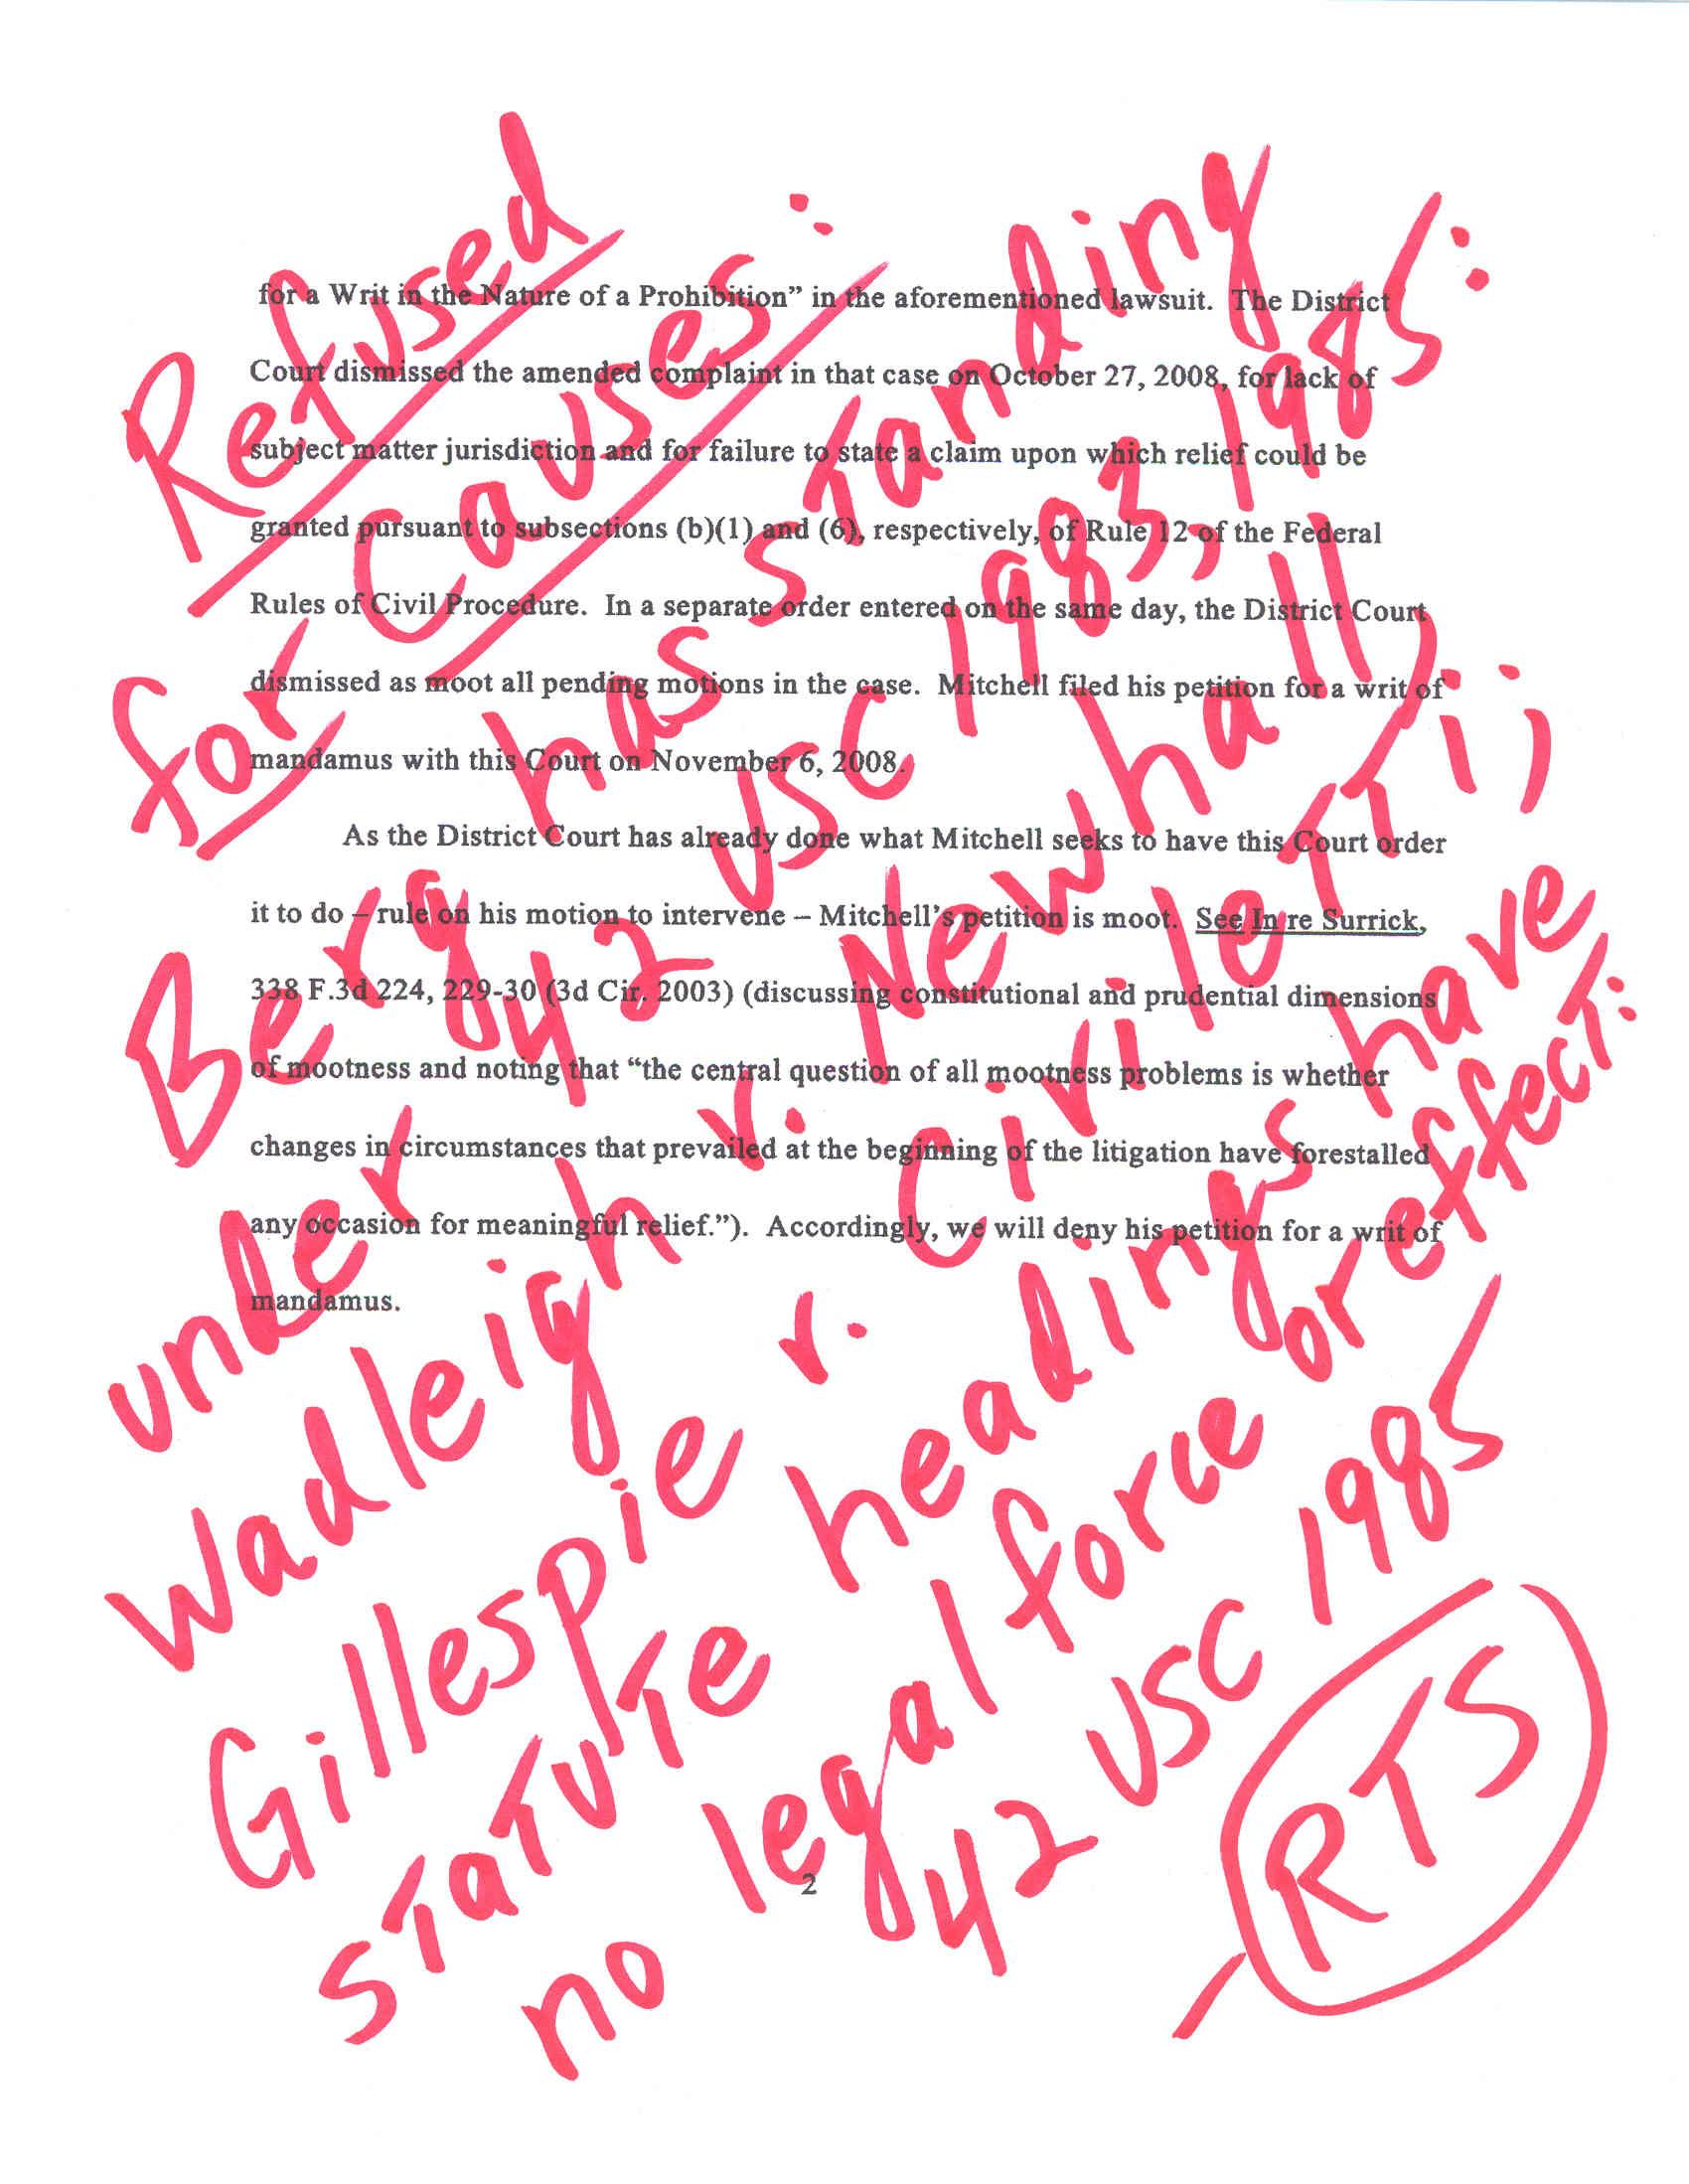 for a Writ in the Nature of a Prohibition” in the aforementioned lawsuit. The District
Court dismissed the amended complaint in that case on October 27, 2008, for lack of
subject matter jurisdiction and for failure to state a claim upon which relief could be
granted pursuant to subsections (b)(1) and (6), respectively, of Rule 12 of the Federal
Rules of Civil Procedure. In a separate order entered on the same day, the District Court
dismissed as moot all pending motions in the case. Mitchell filed his petition for a writ of
mandamus with this Court on November 6, 2008.
As the District Court has already done what Mitchell seeks to have this Court order
it to do – rule on his motion to intervene – Mitchell’s petition is moot. See In re Surrick,
338 F.3d 224, 229-30 (3d Cir. 2003) (discussing constitutional and prudential dimensions
of mootness and noting that “the central question of all mootness problems is whether
changes in circumstances that prevailed at the beginning of the litigation have forestalled
any occasion for meaningful relief.”). Accordingly, we will deny his petition for a writ of
mandamus.
2
Refused
for Causes:
Berg has standing
under 42 USC 1983, 1985:
Wadleigh v. Newhall,
Gillespie v. Civiletti;
statute headings have
no legal force or effect:
42 USC 1985
RTS